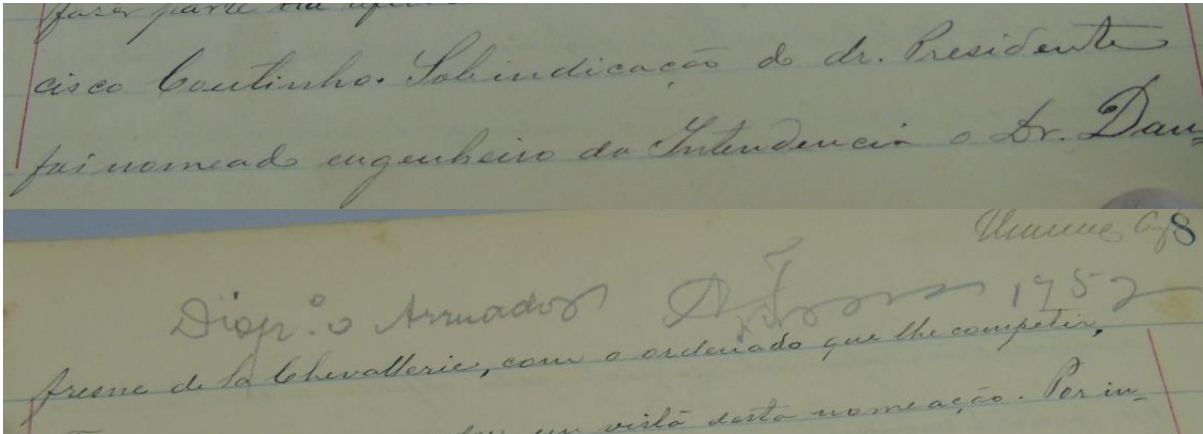 fazer parte da
cisco Coutinho. Sob indicação do dr. Presidente
foi nomeado engenheiro da Intendencia o Dr. Dau=
8
Arruador 1952
fresne de la Chevallerie, com o ordenado que lhe competir,
em vista desta nomeação. Por in=